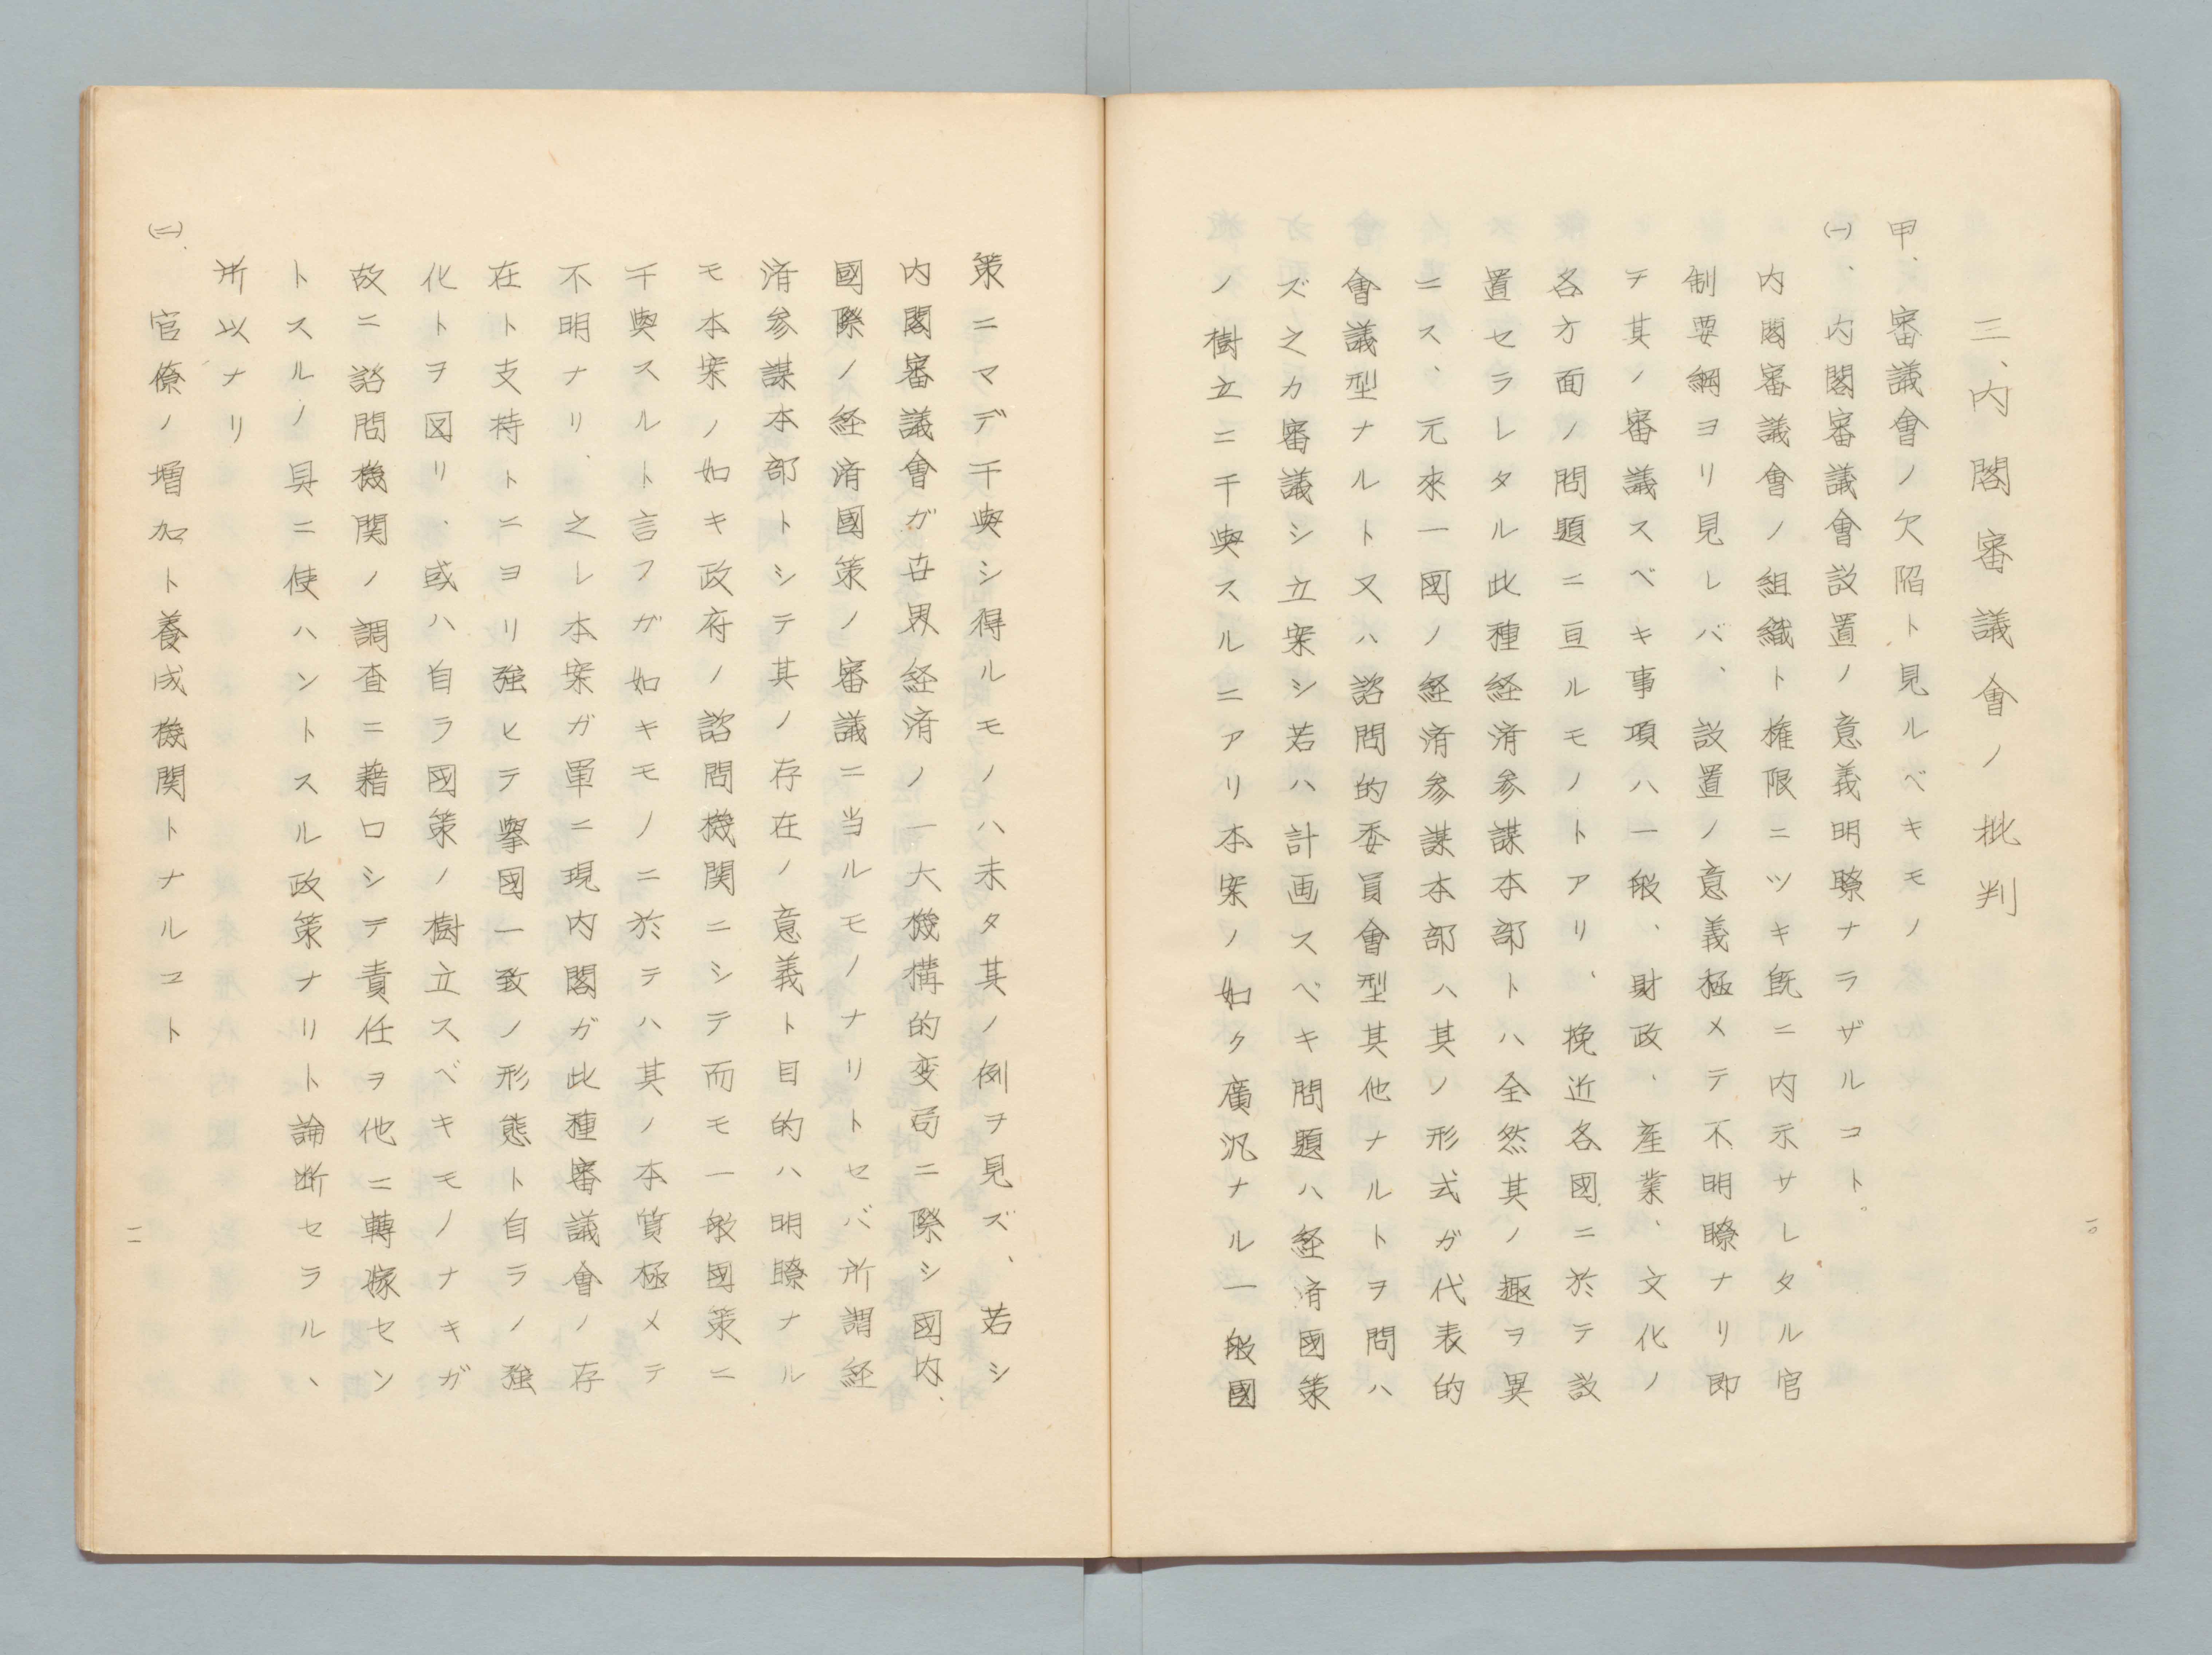 三、内閣審議會ノ批判
甲、審議會ノ欠陥ト見ルベキモノ
(一)、内閣審議會設置ノ意義明瞭ナラザルコト。
内閣審議會ノ組織ト権限ニツキ既ニ内示サレタル官
制要綱ヨリ見レバ、設置ノ意義極メテ不明瞭ナリ即
チ其ノ審議スベキ事項ハ一般、財政、産業、文化ノ
各方面ノ問題ニ亘ルモノトアリ、挽近各國ニ於テ設
置セラレタル此種経済参謀本部トハ全然其ノ趣ヲ異
ニス、元來一國ノ経済参謀本部ハ其ノ形式ガ代表的
會議型ナルト又ハ諮問的委員會型其他ナルトヲ問ハ
ズ之カ審議シ立案シ若ハ計画スベキ問題ハ経済國策
ノ樹立ニ干與スルニアリ本案ノ如ク廣汎ナル一般國
一〇
策ニマデ干與シ得ルモノハ未タ其ノ例ヲ見ズ、若シ
内閣審議會ガ世界経済ノ一大機構的変局ニ際シ國内、
國際ノ経済國策ノ審議ニ当ルモノナリトセバ所謂経
済参謀本部トシテ其ノ存在ノ意義ト目的ハ明瞭ナル
モ本案ノ如キ政府ノ諮問機関ニシテ而モ一般國策ニ
干與スルト言フガ如キモノニ於テハ其ノ本質極メテ
不明ナリ、之レ本案ガ單ニ現内閣ガ此種審議會ノ存
在ト支持トニヨリ強ヒテ擧國一致ノ形態ト自ラノ強
化トヲ図リ、或ハ自ラ國策ノ樹立スベキモノナキガ
故ニ諮問機関ノ調査ニ藉口シテ責任ヲ他ニ轉嫁セン
トスルノ具ニ使ハントスル政策ナリト論断セラル、
所以ナリ
(二)、官僚ノ増加ト養成機関トナルコト
一一